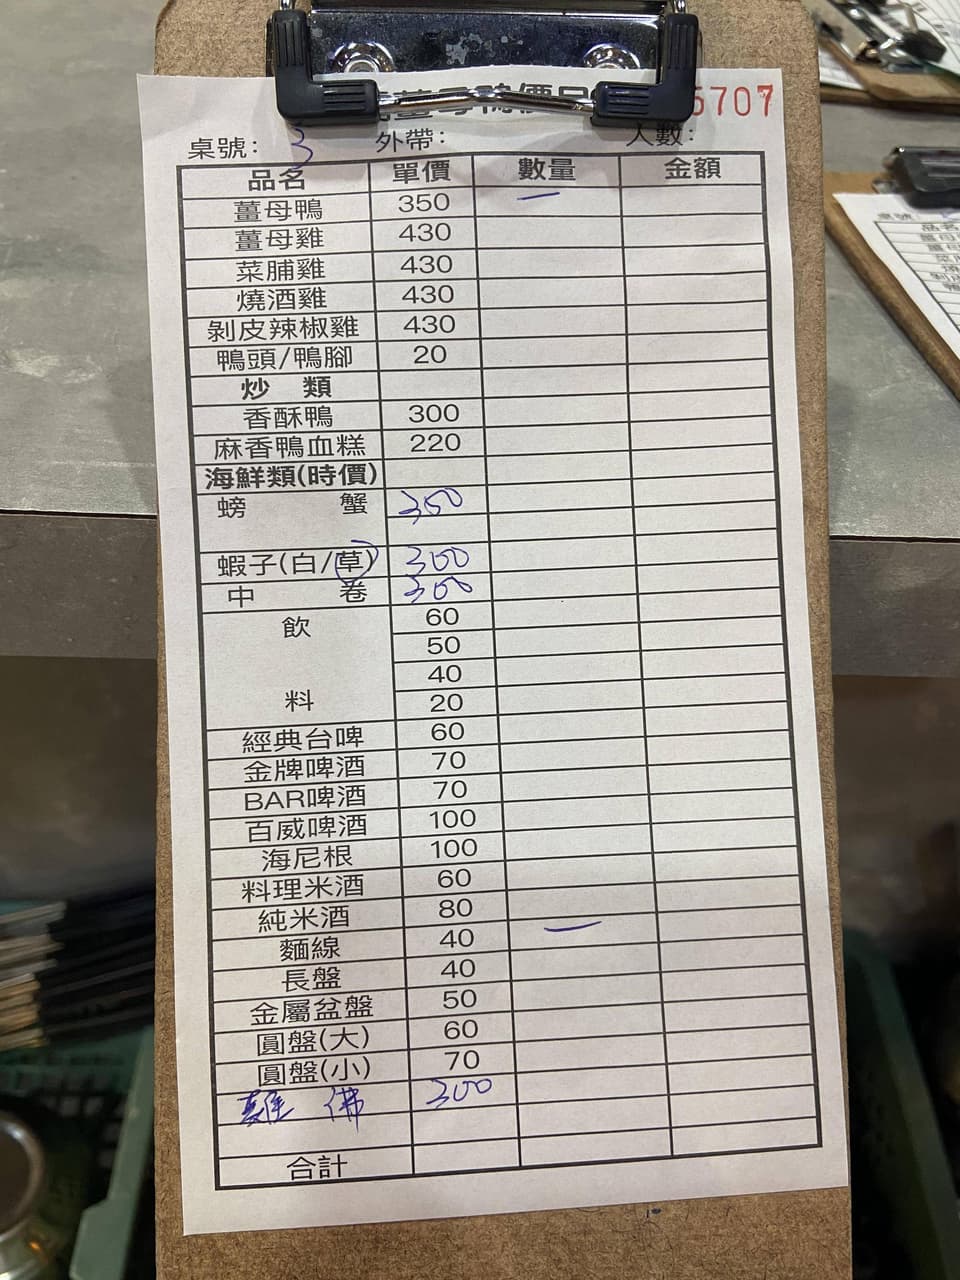 薑母鴨價目 5707
桌號: 3 外帶: 人數:
品名 單價 數量 金額
薑母鴨 350 一
薑母雞 430
菜脯雞 430
燒酒雞 430
剝皮辣椒雞 430
鴨頭/鴨腳 20
炒 類
香酥鴨 300
麻香鴨血糕 220
海鮮類(時價)
螃 蟹 350
蝦子(白/草) 300
中 卷 300
飲 料 60
50
40
20
經典台啤 60
金牌啤酒 70
BAR啤酒 70
百威啤酒 100
海尼根 100
料理米酒 60
純米酒 80
麵線 40 一
長盤 40
金屬盆盤 50
圓盤(大) 60
圓盤(小) 70
雞 佛 300
合計